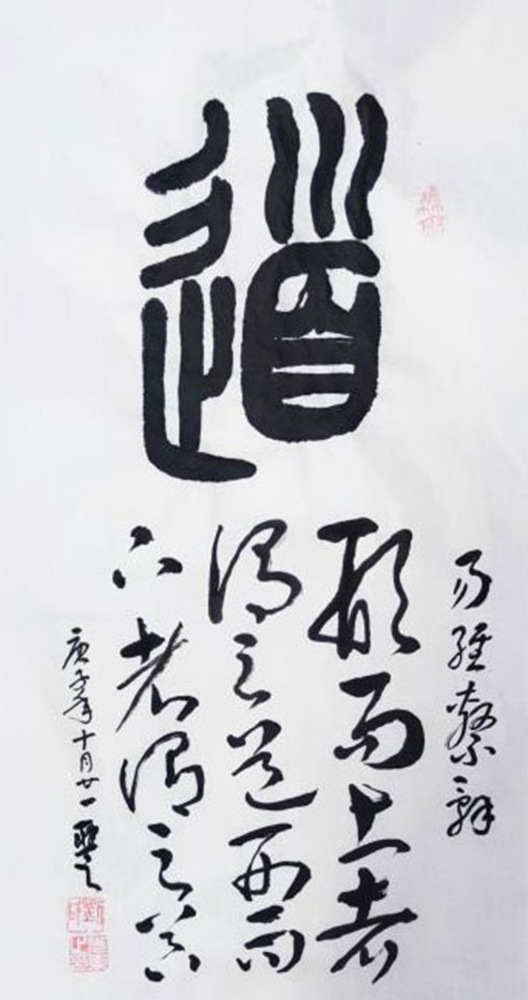 道
易經繫辭
形而上者
謂之道形而
下者謂之器
庚子年十月廿一